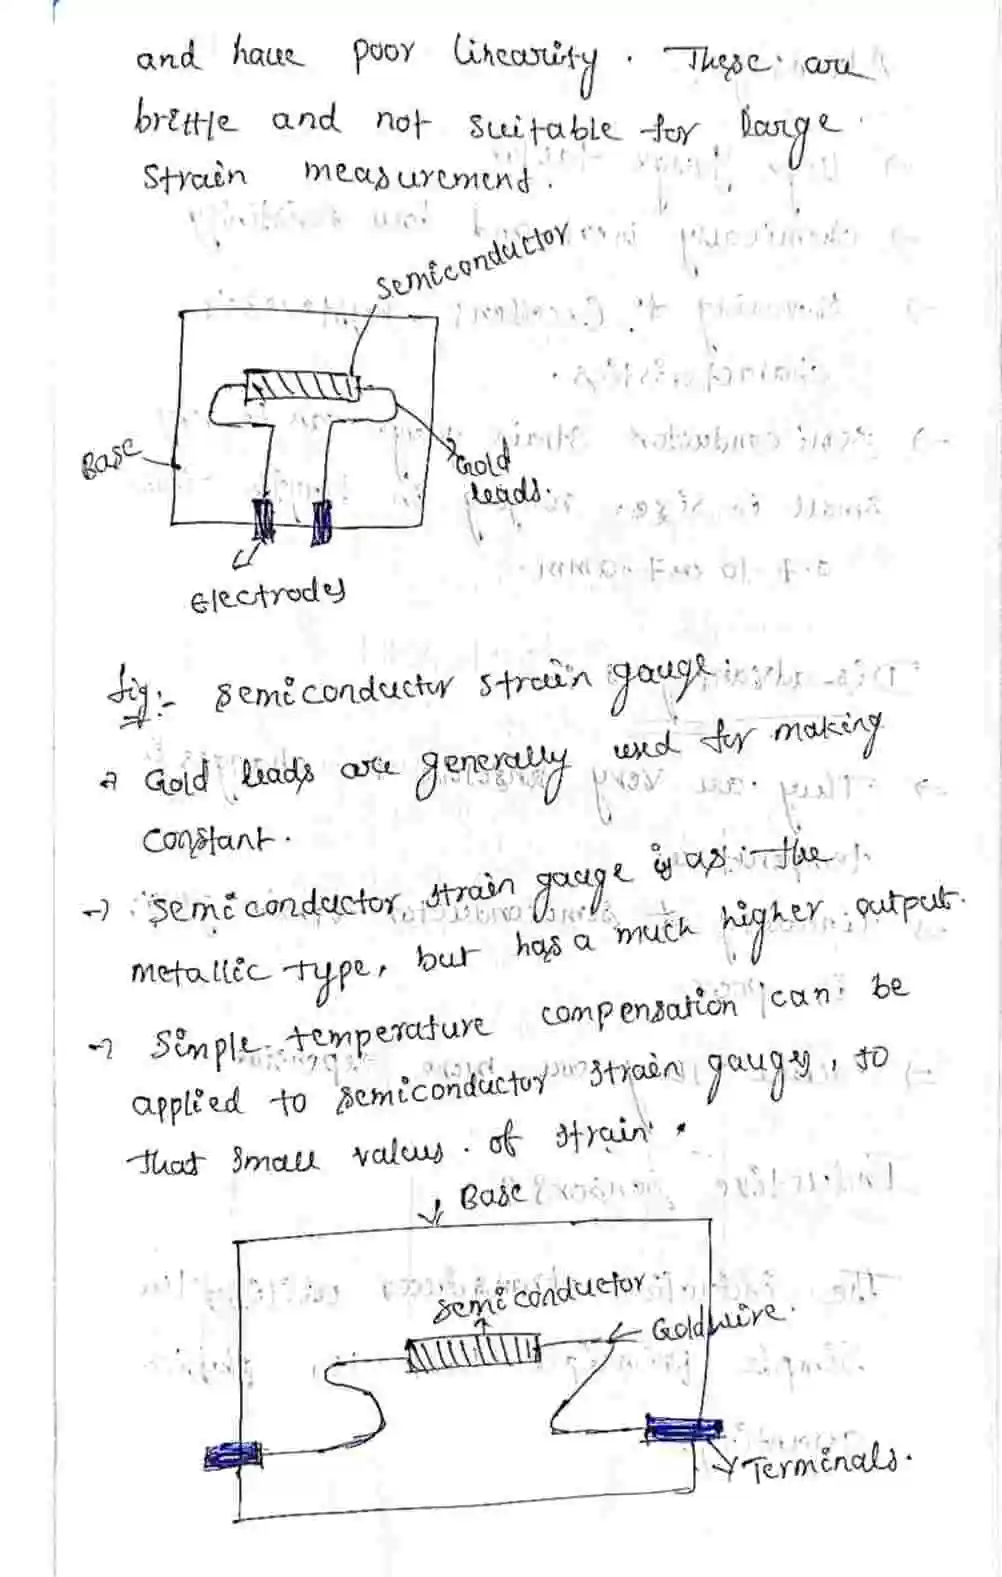 and have poor linearity. These are
brittle and not suitable for large
strain measurement.
semiconductor
Base
Gold
leads.
Electrodes
fig:- semiconductor strain gauge.
→ Gold leads are generally used for making
constant.
→ semiconductor strain gauge is as the
metallic type, but has a much higher output.
→ Simple temperature compensation can be
applied to semiconductor strain gauges, so
that small values of strain.
Base
semiconductor
Gold wire.
Terminals.